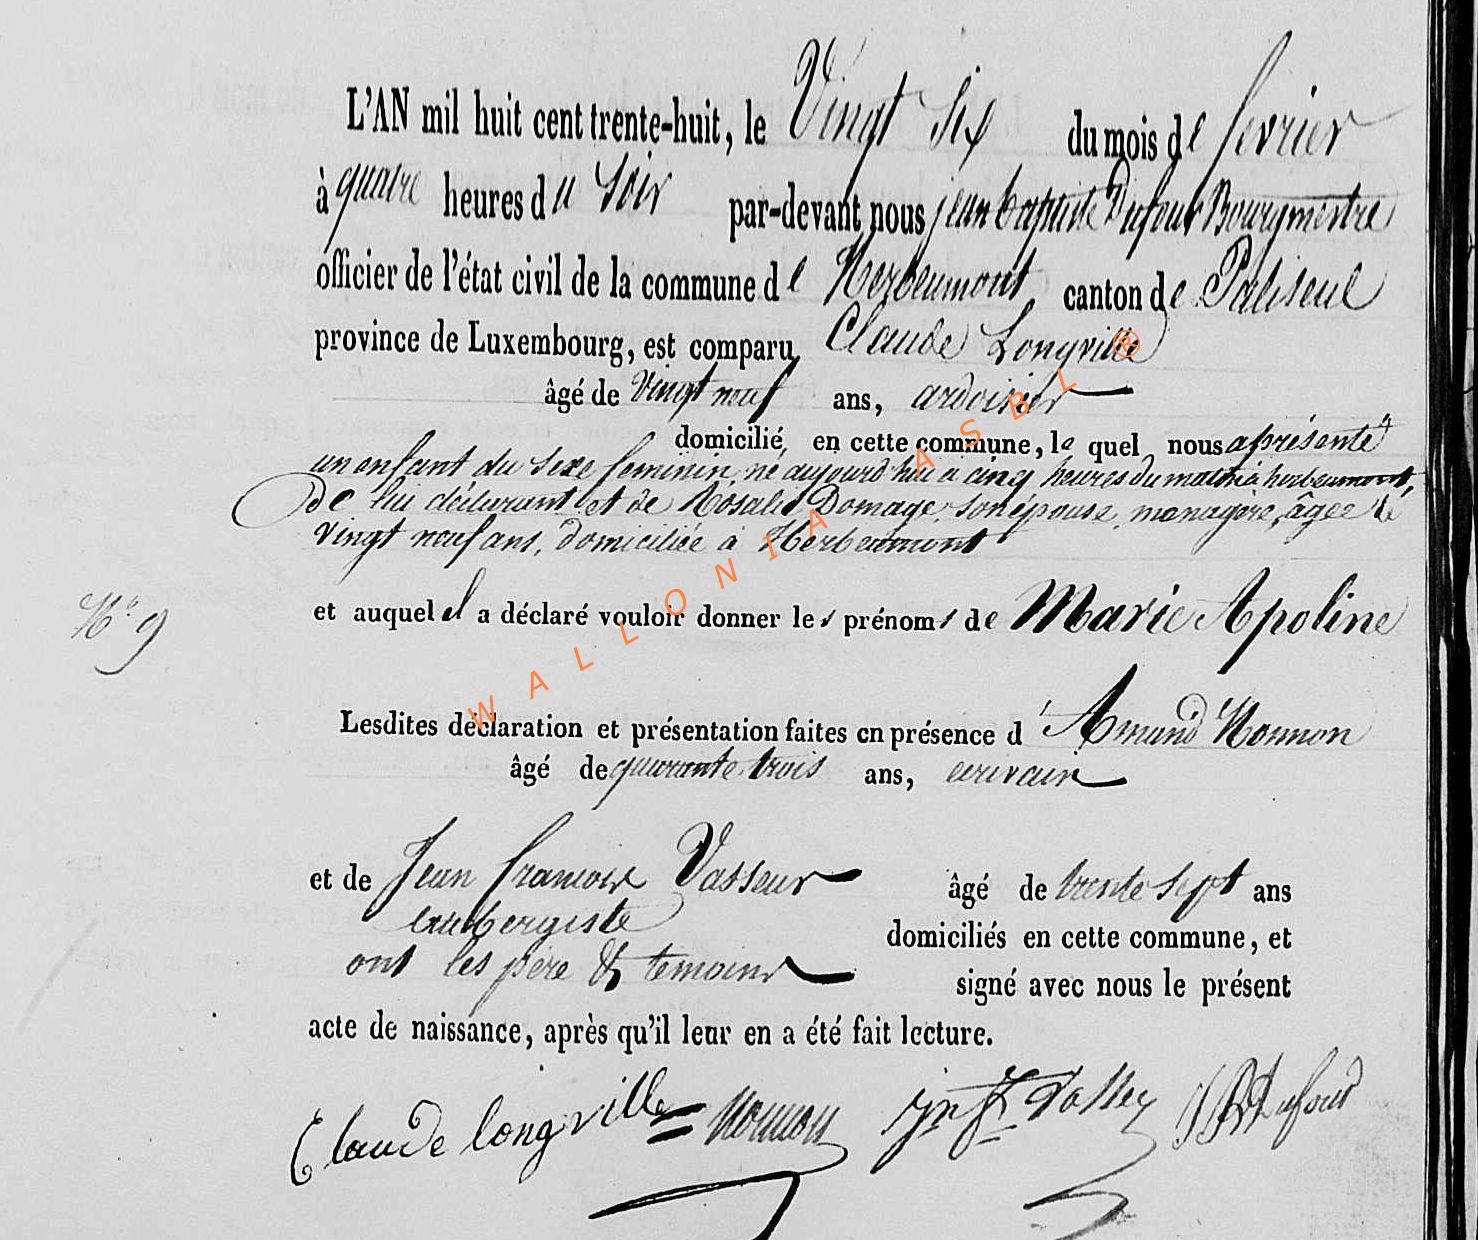 L'AN mil huit cent trente-huit, le Vingt Six du mois de fevrier
à quatre heures du Soir par-devant nous jean baptiste Dufour Bourgmestre
officier de l'état civil de la commune de Herbeumont canton de Paliseul
province de Luxembourg, est comparu Claude Longville
âgé de vingt neuf ans, ardoisier
domicilié, en cette commune, le quel nous a présenté
un enfant du Sexe feminin, né aujourd'hui a cinq heures du matin à herbeumont,
de lui déclarant et de Rosalie Domage, son épouse, menagère, âgée de
vingt neuf ans, domiciliée à Herbeumont
N° 9
et auquel il a déclaré vouloir donner les prénoms de Marie Apoline
Lesdites déclaration et présentation faites en présence d'Amand Nonnon
âgé de quarante trois ans, ecrivain
et de Jean francois Vasseur âgé de trente sept ans
aubergiste domiciliés en cette commune, et
ont les père & temoins signé avec nous le présent
acte de naissance, après qu'il leur en a été fait lecture.
Claude longville Nonnon Dufour
WALLONIA ASBL ®